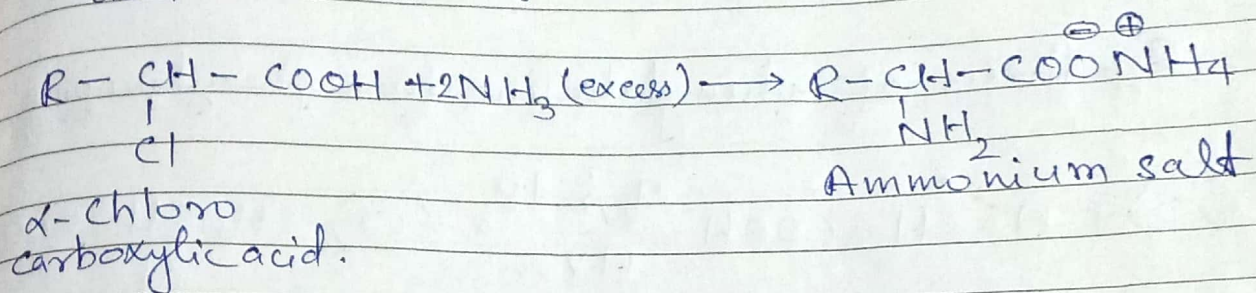 ⊖ ⊕
R - CH - COOH + 2NH₃ (excess) → R - CH - COONH₄
| |
Cl NH₂
Ammonium salt
α-Chloro
carboxylic acid.